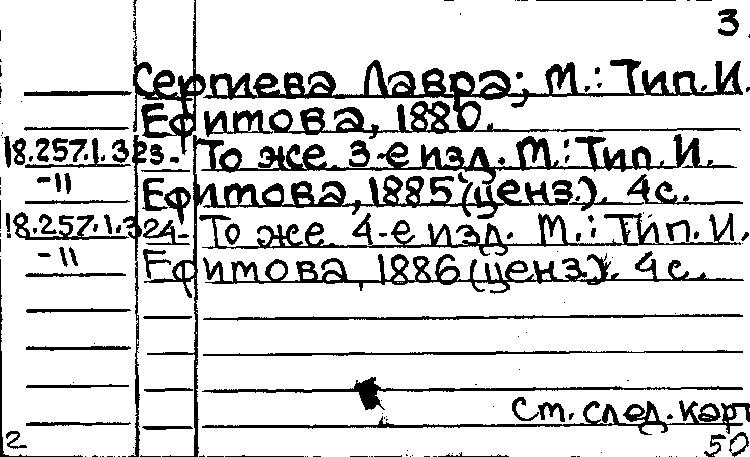 3.
Сергиева Лавра; М.: Тип. И.
Ефимова, 1880.
18.257.1.323- То же. 3-е изд. М.: Тип. И.
-11 Ефимова, 1885 (ценз.). 4с.
18.257.1.324- То же. 4-е изд. М.: Тип. И.
-11 Ефимова, 1886 (ценз.). 4с.
См. след. карт
2 50